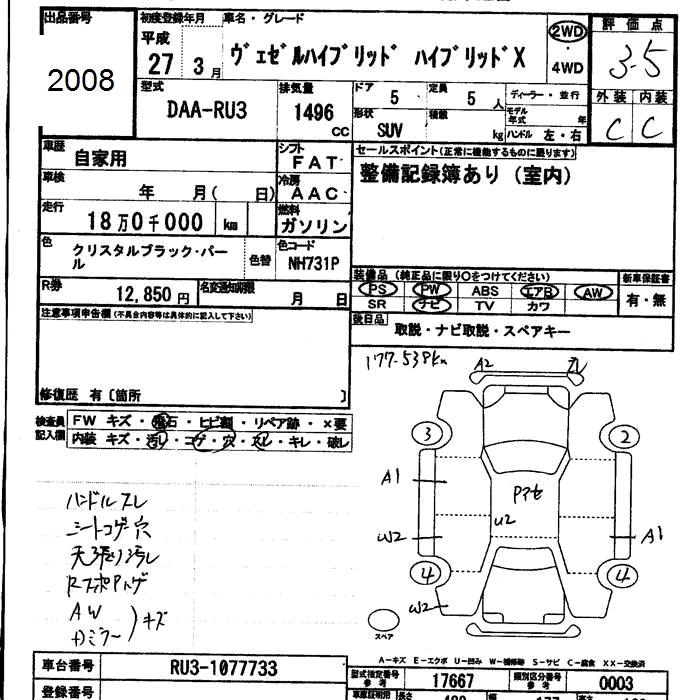 出品番号
2008
初度登録年月
平成
27
3月
車名・グレード
ヴェゼルハイブリッド ハイブリッドX
2WD
4WD
評価点
3.5
外装 内装
C C
型式
DAA-RU3
排気量
1496
CC
ドア
5
定員
5
人
ディーラー・並行
形状
SUV
積載
kg
モデル年式
年
ハンドル 左・右
車歴
自家用
シフト
FAT
セールスポイント(正常に機能するものに限ります)
整備記録簿あり(室内)
車検
年 月( 日)
冷房
AAC
走行
18万0千000 km
燃料
ガソリン
色
クリスタルブラック・パール
色替
色コード
NH731P
装備品(純正品に限り○をつけてください)
新車保証書
PS PW ABS エアB AW
有・無
SR ナビ TV カワ
R券
12,850円
名変通知期限
月 日
後日品
取説・ナビ取説・スペアキー
注意事項申告欄(不具合内容等は具体的に記入して下さい)
修復歴 有[箇所 ]
177.538km
検査員
記入欄
FW キズ・飛石・ヒビ割・リペア跡・×要
内装 キズ・汚レ・コゲ・穴・スレ・キレ・破レ
A2
スレ
3
2
A1
Pアセ
U2
W2
A1
4
4
W2
スペア
ハンドルスレ
シートコゲ穴
天張り汚レ
AW
キズ
A-キズ E-エクボ U-凹み W-補修跡 S-サビ C-腐食 XX-交換済
車台番号
RU3-1077733
型式指定番号
参考
17667
類別区分番号
参考
0003
登録番号
長さ